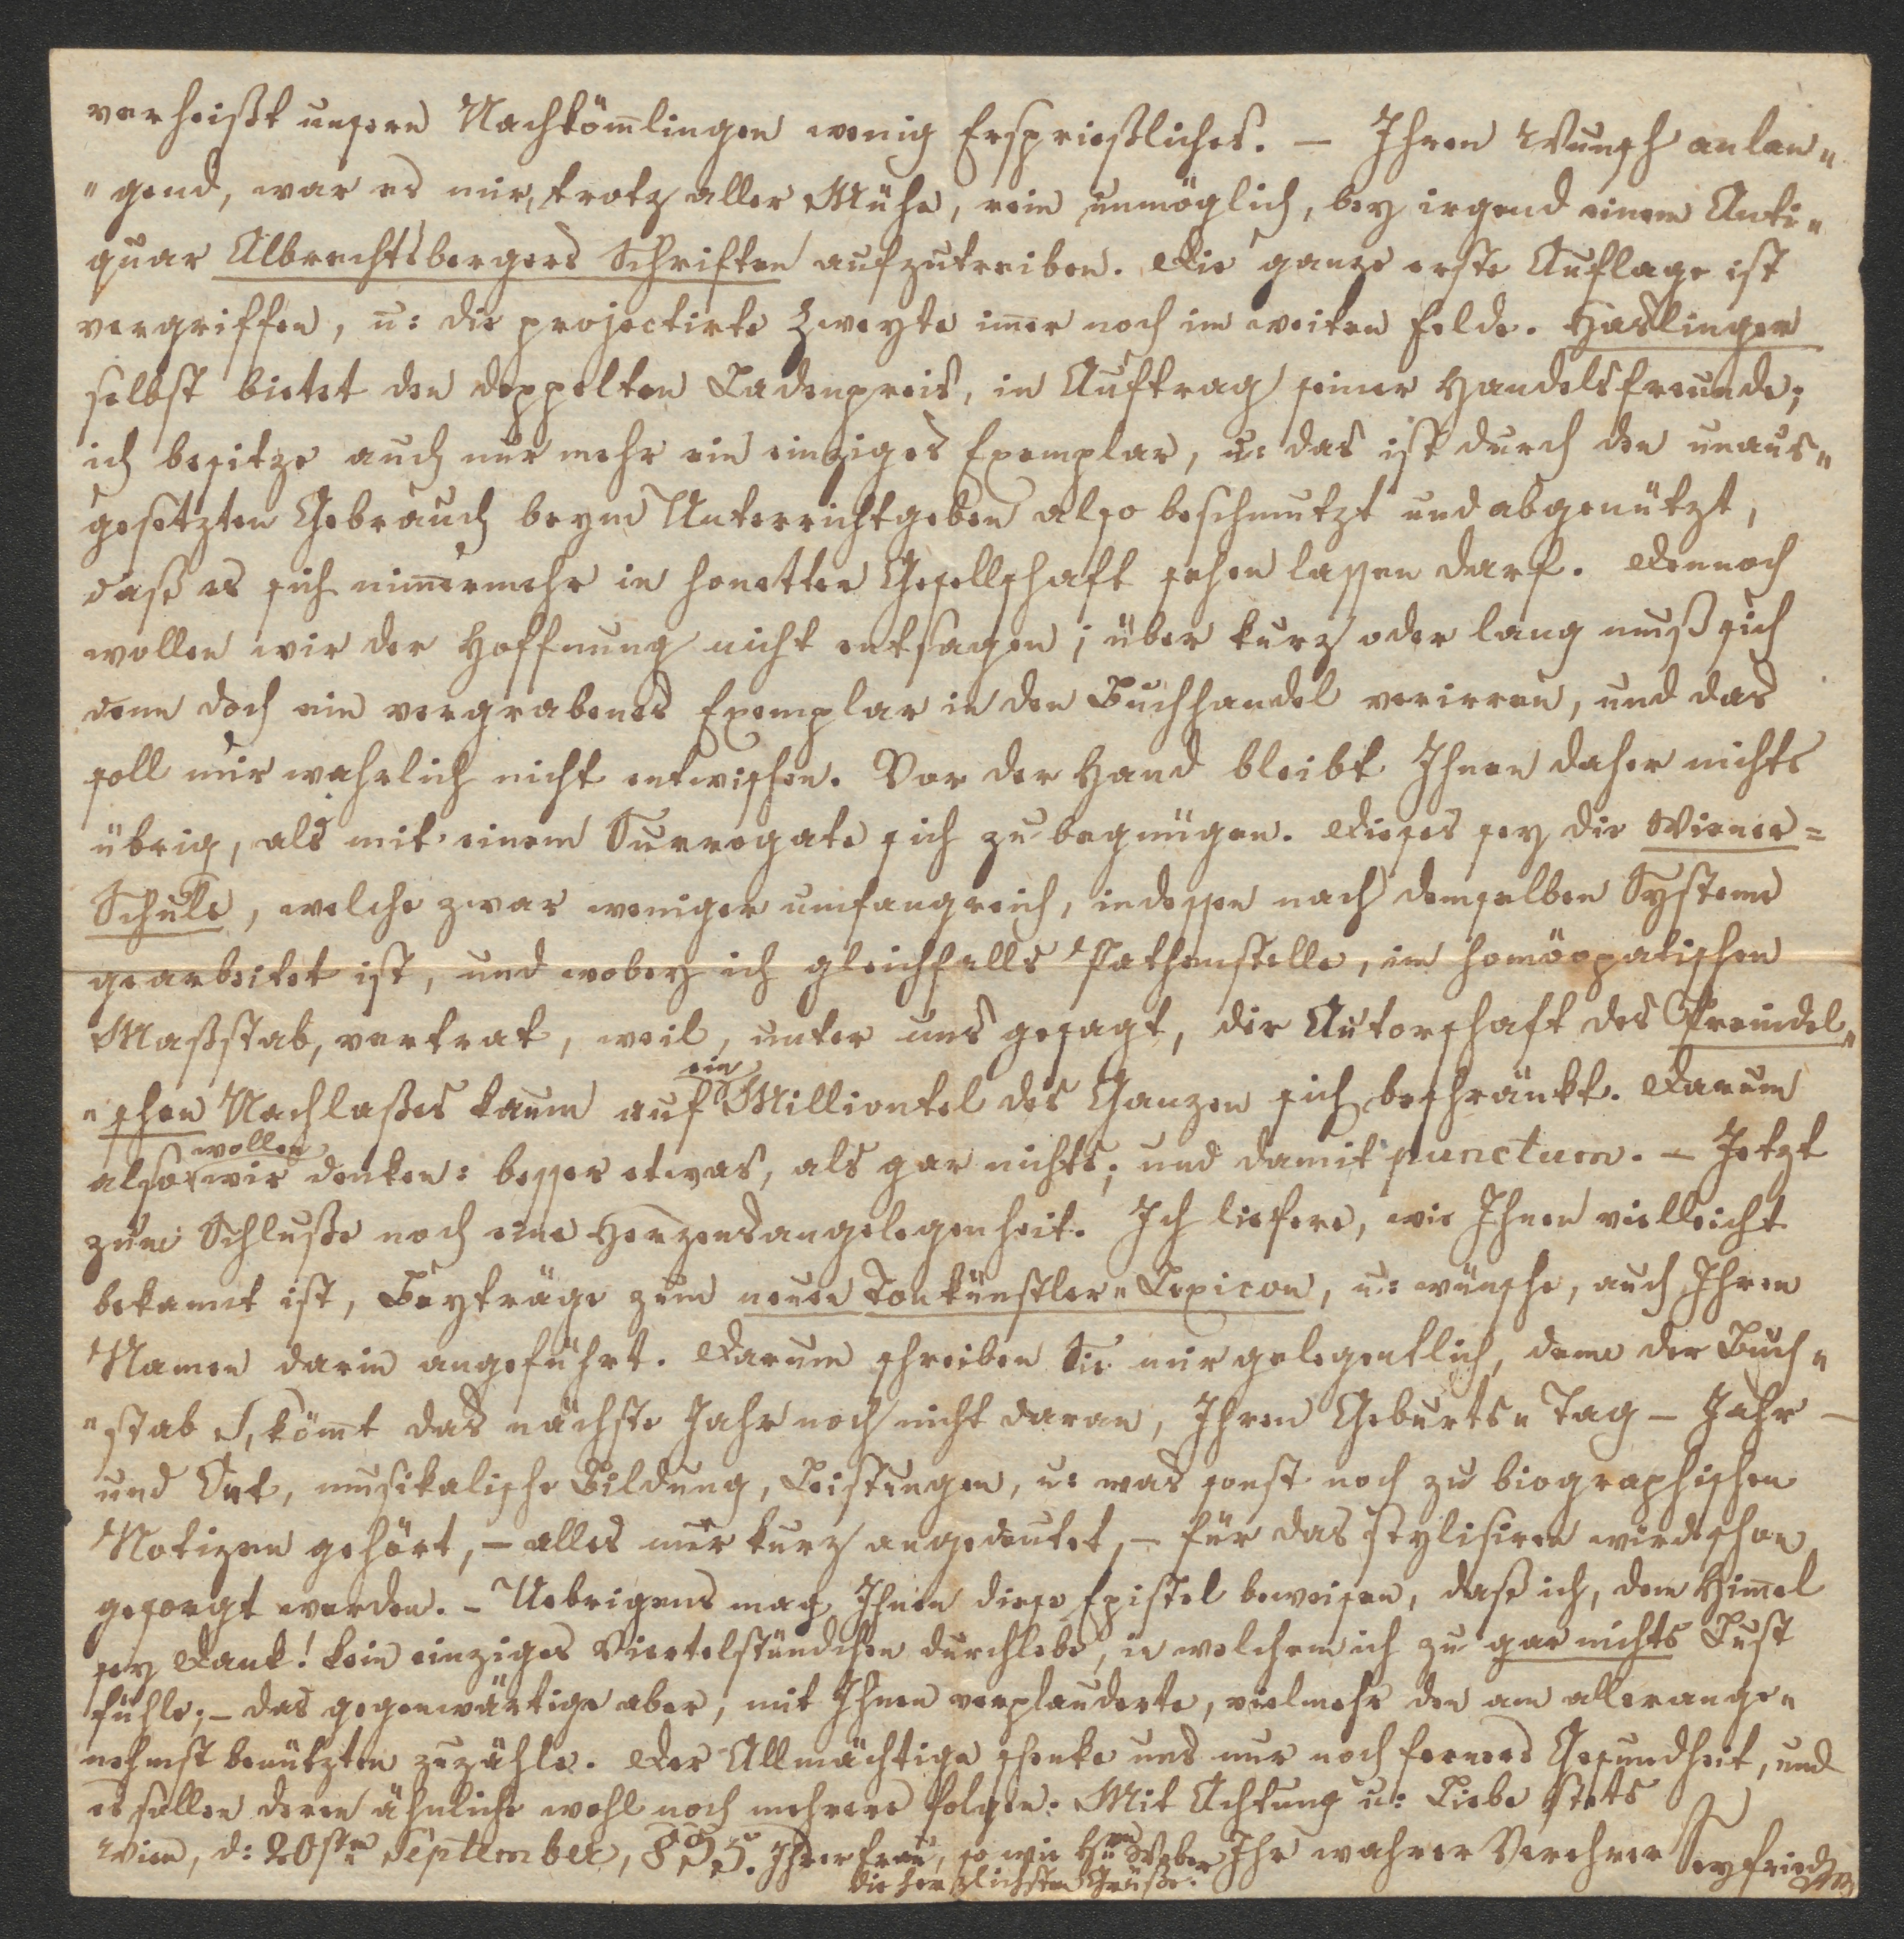 verheißt unsern Nachköm̄lingen wenig Ersprießliches. – Ihren Wunsch anlan„
„gend, war es mir, trotz aller Mühe, rein unmöglich, bey irgend einem Anti„
quar Albrechtsbergers Schriften aufzutreiben. Die ganze erste Auflage ist
vergriffen, u: die projectirte Zweyte im̄er noch im weiten Felde. Haslinger
selbst bietet den doppelten Ladenpreis, in Auftrag seiner Handelsfreunde;
ich besitze auch nur mehr ein einziges Exemplar, u: das ist durch den unaus„
gesetzten Gebrauch beym Unterrichtgeben also beschmutzt und abgenützt,
daß es sich nim̄ermehr in honetter Gesellschaft sehen lassen darf. Dennoch
wollen wir der Hoffnung nicht entsagen; über kurz oder lang muß sich
denn doch ein vergrabenes Exemplar in den Buchhandel verirren, und das
soll mir wahrlich nicht entwischen. Vor der Hand bleibt Ihnen daher nichts
übrig, als mit einem Surrogate sich zu begnügen. Dieses sey die Wiener=
Schule, welche zwar weniger umfangreich, indessen nach demselben Systeme
gearbeitet ist, und wobey ich gleichfalls Pathenstelle, im homöopatischen
Maßstab, vertrat, weil, unter uns gesagt, die Autorschaft des Preindel„
„schen Nachlaßes kaum auf ein Milliontel des Ganzen sich beschränkt. Darum
also wollen wir denken: besser etwas, als gar nichts; und damit punctum. – Jetzt
zum Schluße noch eine Herzensangelegenheit. Ich liefere, wie Ihnen vielleicht
bekannt ist, Beyträge zum neuen Tonkünstler„Lexicon, u: wünsche, auch Ihren
Namen darin angeführt. Darum schreiben Sie mir gelegentlich, denn der Buch„
„stab S, köm̄t das nächste Jahr noch nicht daran, Ihren Geburts„Tag – Jahr –
und Ort, musikalische Bildung, Leistungen, u: was sonst noch zu biographischen
Notizen gehört, – alles nur kurz angedeutet, – für das stylisiren wird schon
gesorgt werden. – Uebrigens mag Ihnen diese Epistel beweisen, daß ich, dem Him̄el
sey Dank! kein einziges Viertelstündchen durchlebe, in welchem ich zu gar nichts Lust
fühle; – das gegenwärtige aber, mit Ihnen verplauderte, vielmehr den am allerange„
nehmst benützten zuzähle. Der Allmächtige schenke uns nur noch ferners Gesundheit, und
es sollen deren ähnliche wohl noch mehrere folgen. Mit Achtung u: Liebe stets
Wien, d: 20sten September, 835. Ihrer Frau, so wie Hrn Weber Ihr wahrer Verehrer Seyfried
die herzlichsten Grüße.